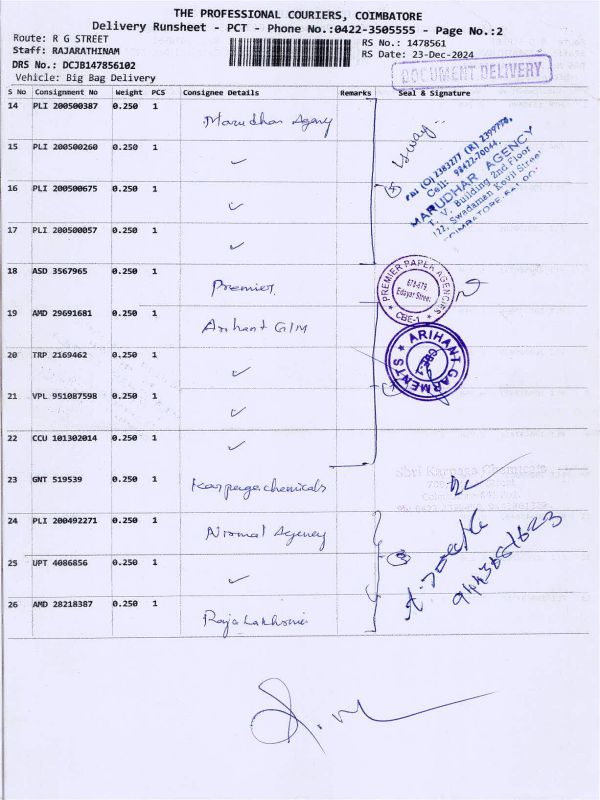 THE PROFESSIONAL COURIERS, COIMBATORE
Delivery Runsheet - PCT - Phone No.:0422-3505555 - Page No.:2
Route: R G STREET
Staff: RAJARATHINAM
RS No.: 1478561
RS Date: 23-Dec-2024
DRS No.: DCJB147856102
Vehicle: Big Bag Delivery
DOCUMENT DELIVERY
S No Consignment No Weight PCS Consignee Details Remarks Seal & Signature
14 PLI 200500387 0.250 1 Marudhar Agency
15 PLI 200500260 0.250 1 ✓
16 PLI 200500675 0.250 1 ✓
17 PLI 200500057 0.250 1 ✓
PH: (O) 2383277 (R) 2399776,
Cell: 98422-70044,
MARUDHAR AGENCY
T. V. Building 2nd Floor
122, Swadaman Kovil Street
18 ASD 3567965 0.250 1 Premier
PREMIER PAPER AGENCIES
Edayar Street
CBE-1
19 AMD 29691681 0.250 1 Arihant G/M
ARIHANT GARMENTS
CBE-1
20 TRP 2169462 0.250 1 ✓
21 VPL 951087598 0.250 1 ✓
22 CCU 101302014 0.250 1 ✓
23 GNT 519539 0.250 1 Karpaga chemicals
Shri Karpaga Chemicals
24 PLI 200492271 0.250 1 Nirmal Agency
25 UPT 4086856 0.250 1 ✓
26 AMD 28218387 0.250 1 Rajalakshmi